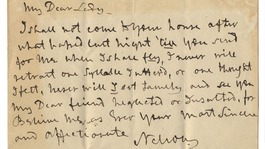 My Dear Lady
I shall not come to your house after
what passed last night 'till you send
for me when I shall fly, I never will
retract one syllable I utter'd, or one thought
I felt, never will I eat family, and see you
My Dear friend Neglected or Insulted, for
Believe Me, as Ever Your Most Sincere
and affectionate Nelson